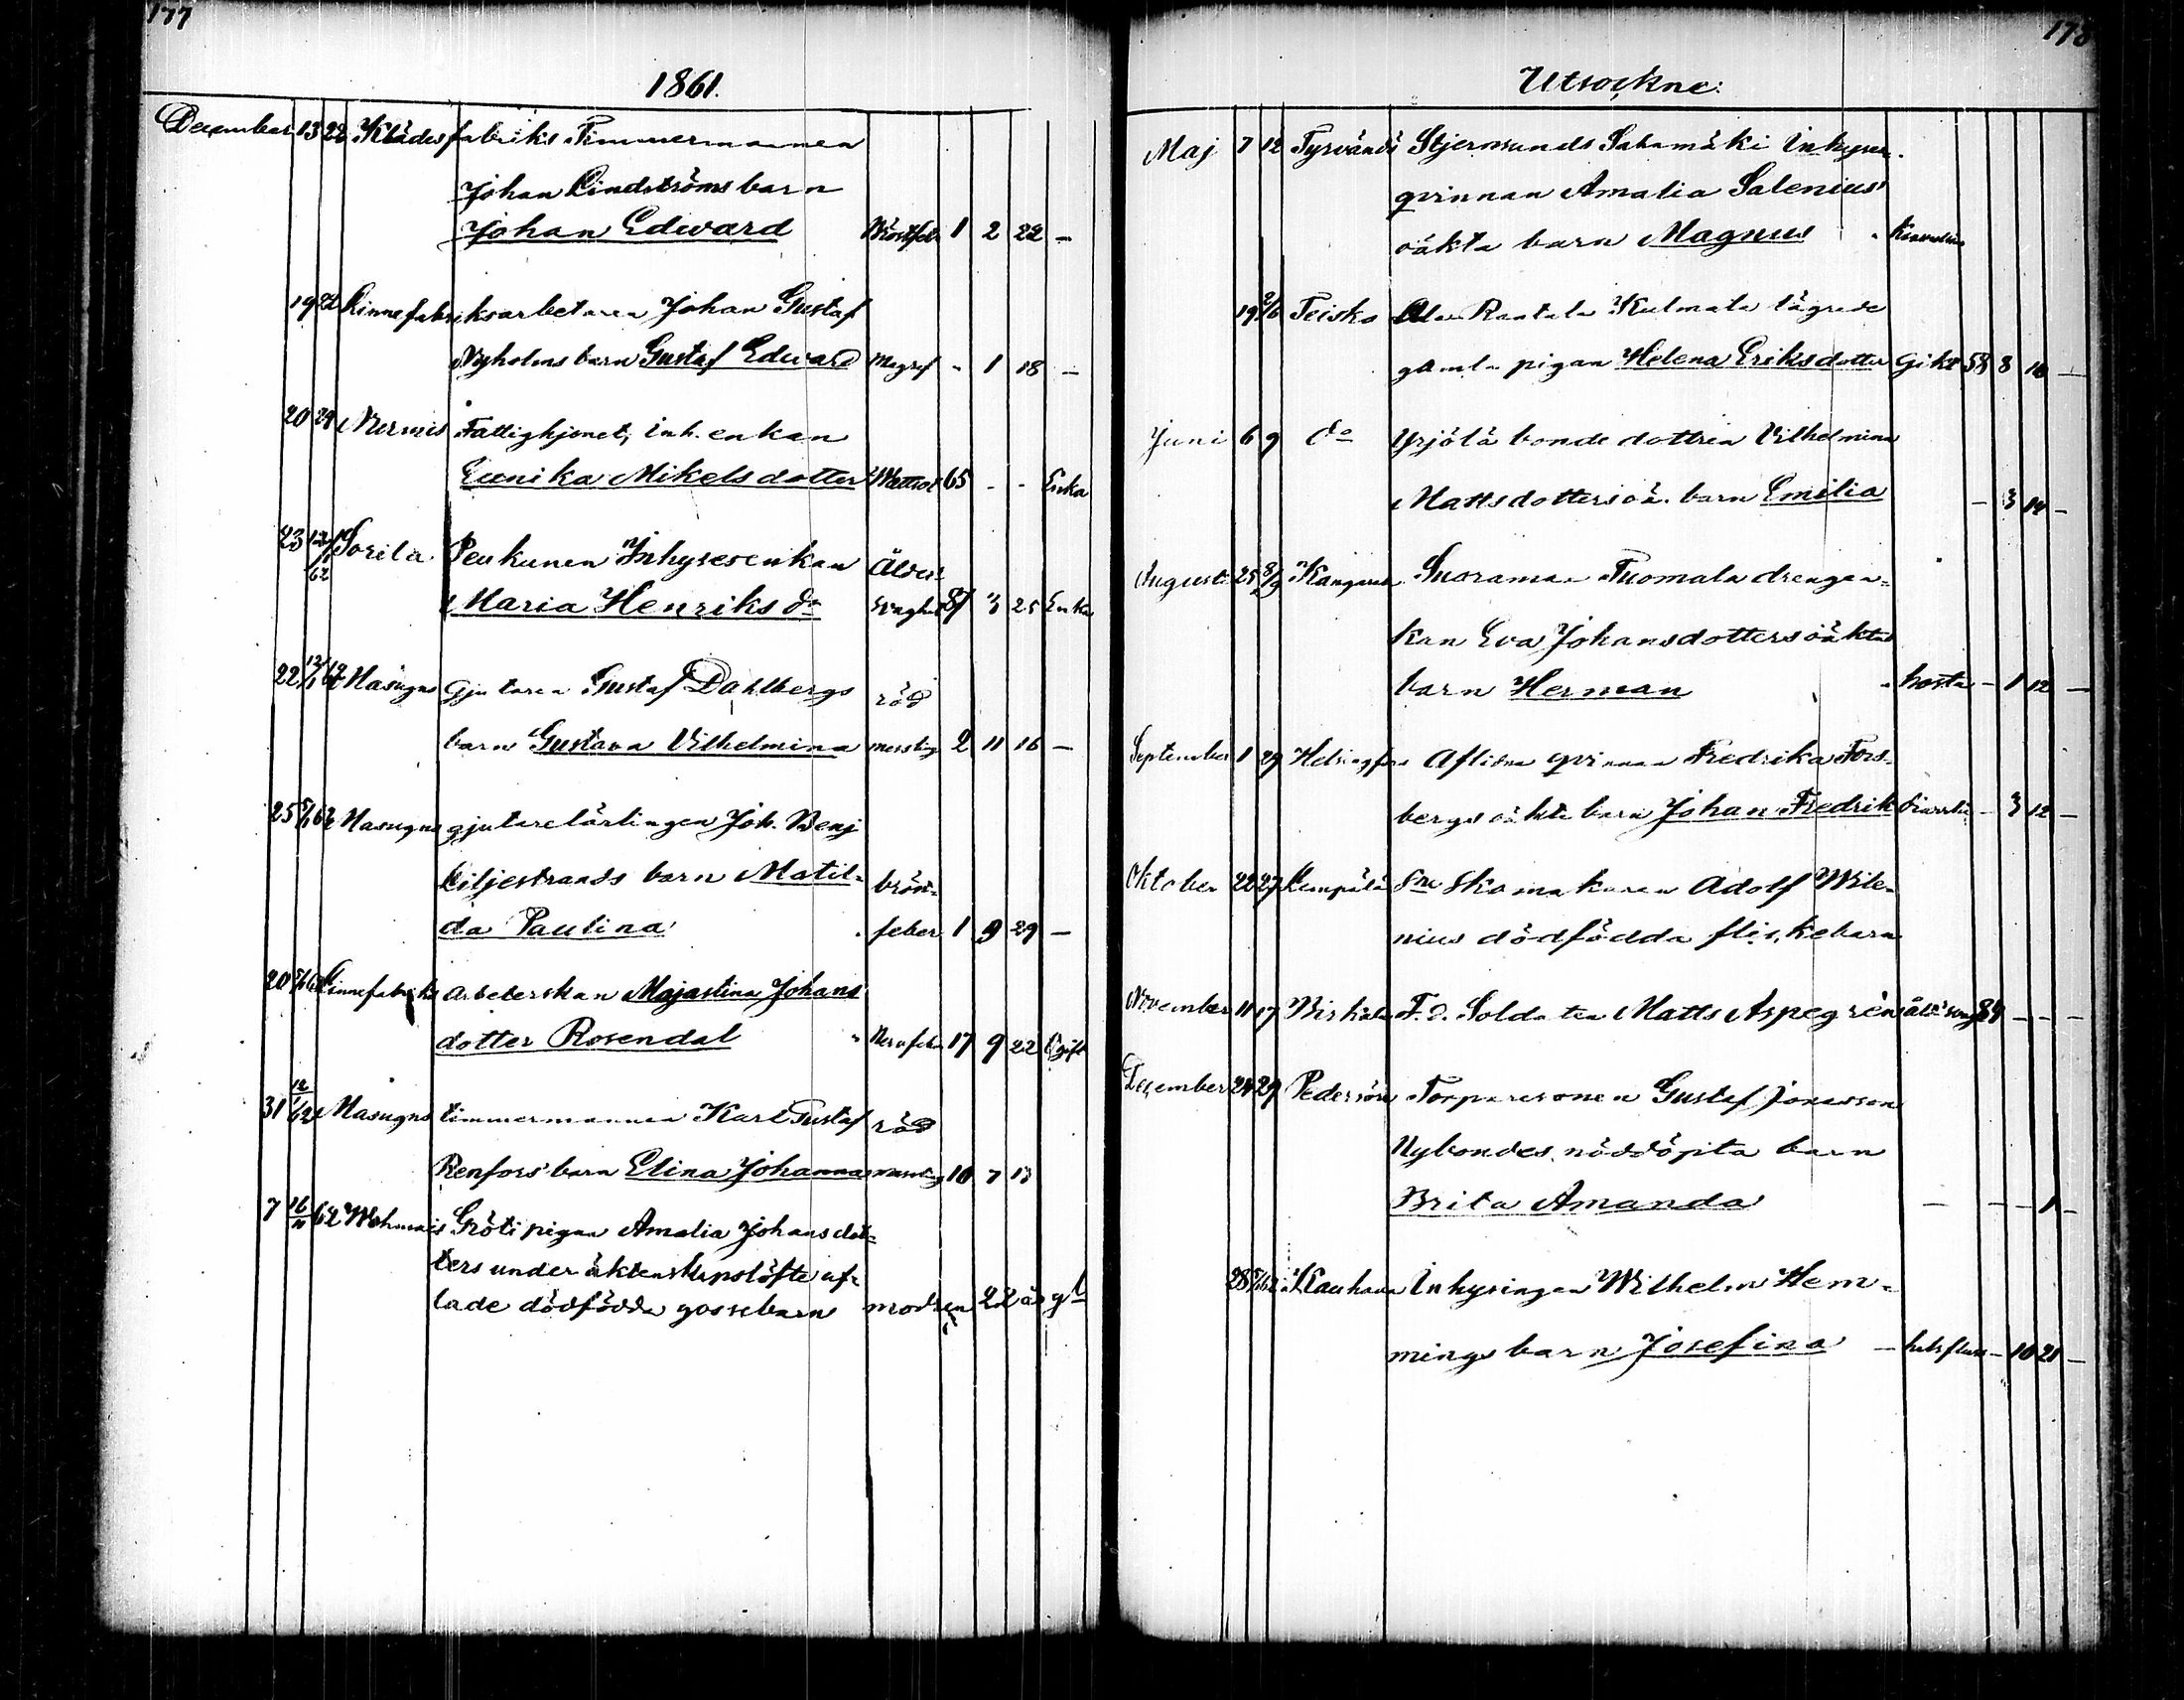 177
1861.
December 13 22 Klädesfabriks Timmermannen
Johan Lindströms barn
Johan Edward Bröstfeb 1 2 22 –
19 22 Linnefabriksarbetaren Johan Gustaf
Nyholms barn Gustaf Edward Magref - 1 18 –
20 29 Fattighjonet, inh. enkan
Eunika Mikelsdotter Wattsot 65 - - Enka
23 12/1 62 Sorila Peukunen Inhysesenkan Ålder-
Maria Henriks dr 87 3 25 Enka
22 12/1 62 Masugns Gjutaren Gustaf Dahlbergs röd
barn Gustava Vilhelmina messling 2 11 16 –
25 5/1 62 Masugns gjutarelärlingen Joh. Benj
Liljestrands barn Matil-
bröst-
da Paulina feber 1 9 29 –
20 5/1 62 Linnefabriks arbeterskan Majastina Johans
dotter Rosendal " Nervfeber 17 9 22 Ogift
31 12/1 62 Masugns timmermannen Karl Gustaf röd
Renfors' barn Elina Johanna messling 10 7 13
7 16/11 62 Gröti pigan Amalia Johansdot-
ters under äktenskapslöfte af-
lade dödfödda gossebarn modren 22 år gl
178
Utsockne:
Maj 7 12 Tyrvändö Stjernsunds Sahamäki Inhyses-
qvinnan Amalia Salenius'
oäkta barn Magnus
19 2/6 Teisko Ala Rantala Kulmala lägrade
gamla pigan Helena Eriksdotter Gikt 58 8 –
Juni 6 9 do Yrjölä bonde dottren Vilhelmina
Mattsdotters oä. barn Emilia – 3 14 –
Augusti 25 8/9 Kangasala Suorama Tuomala drengen-
kan Eva Johansdotters oäkta
barn Herman hosta – 1 12 –
September 1 29 Helsingfors Aflidna qvinnan Fredrika Fors-
bergs oäkta barn Johan Fredrik – 3 12 –
Oktober 22 27 Lempälä Sne Skomakaren Adolf Wile-
nius dödfödda flickebarn
November 11 17 Birkala F.d. Soldaten Matts Aspegren 89 – – –
December 24 29 Pedersöre Torparesonen Gustaf Jonasson
Nybondes nöddöpta barn
Brita Amanda – – – 1 –
28 5/1 62 Kauhava Inhysingen Wilhelm Hem-
mings barn Josefina – halsfluss – 10 21 –